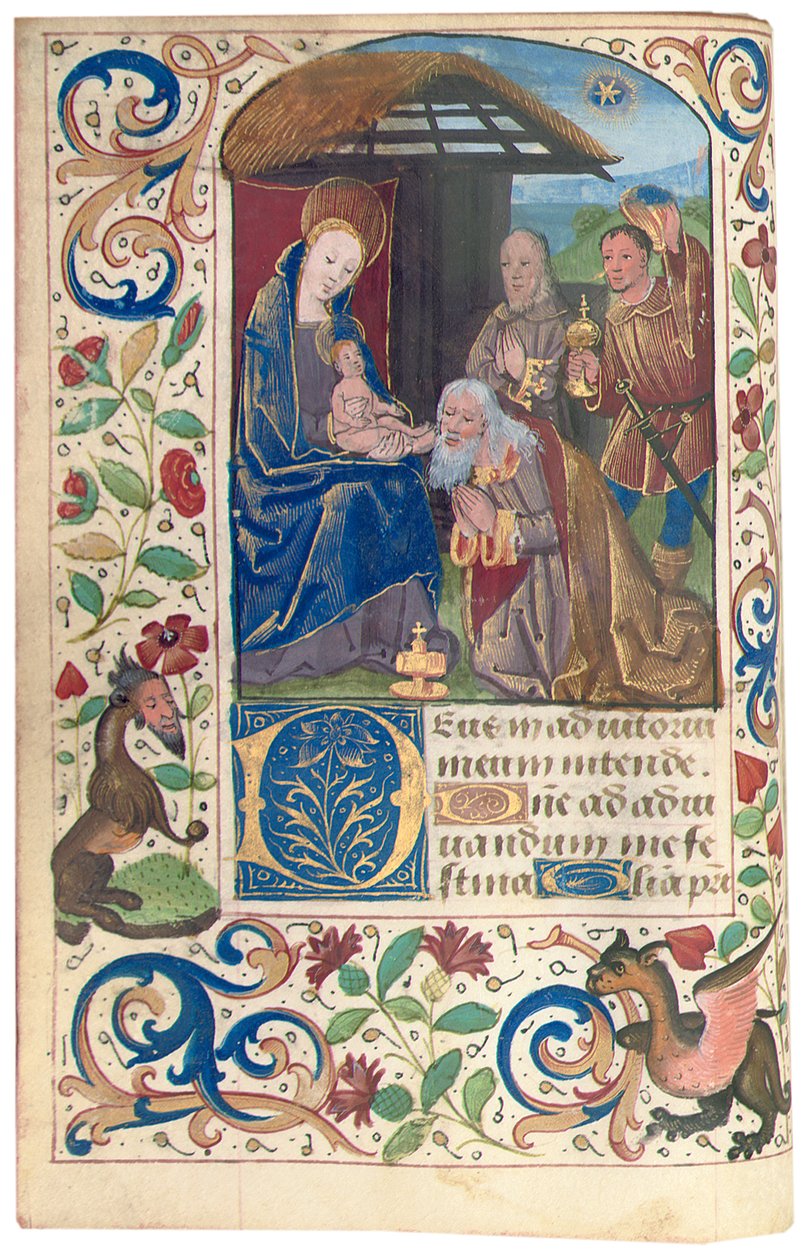 DEus in adiutoriu
meum intende.
Dne ad adiu
uandum me fe
stina Glia pri